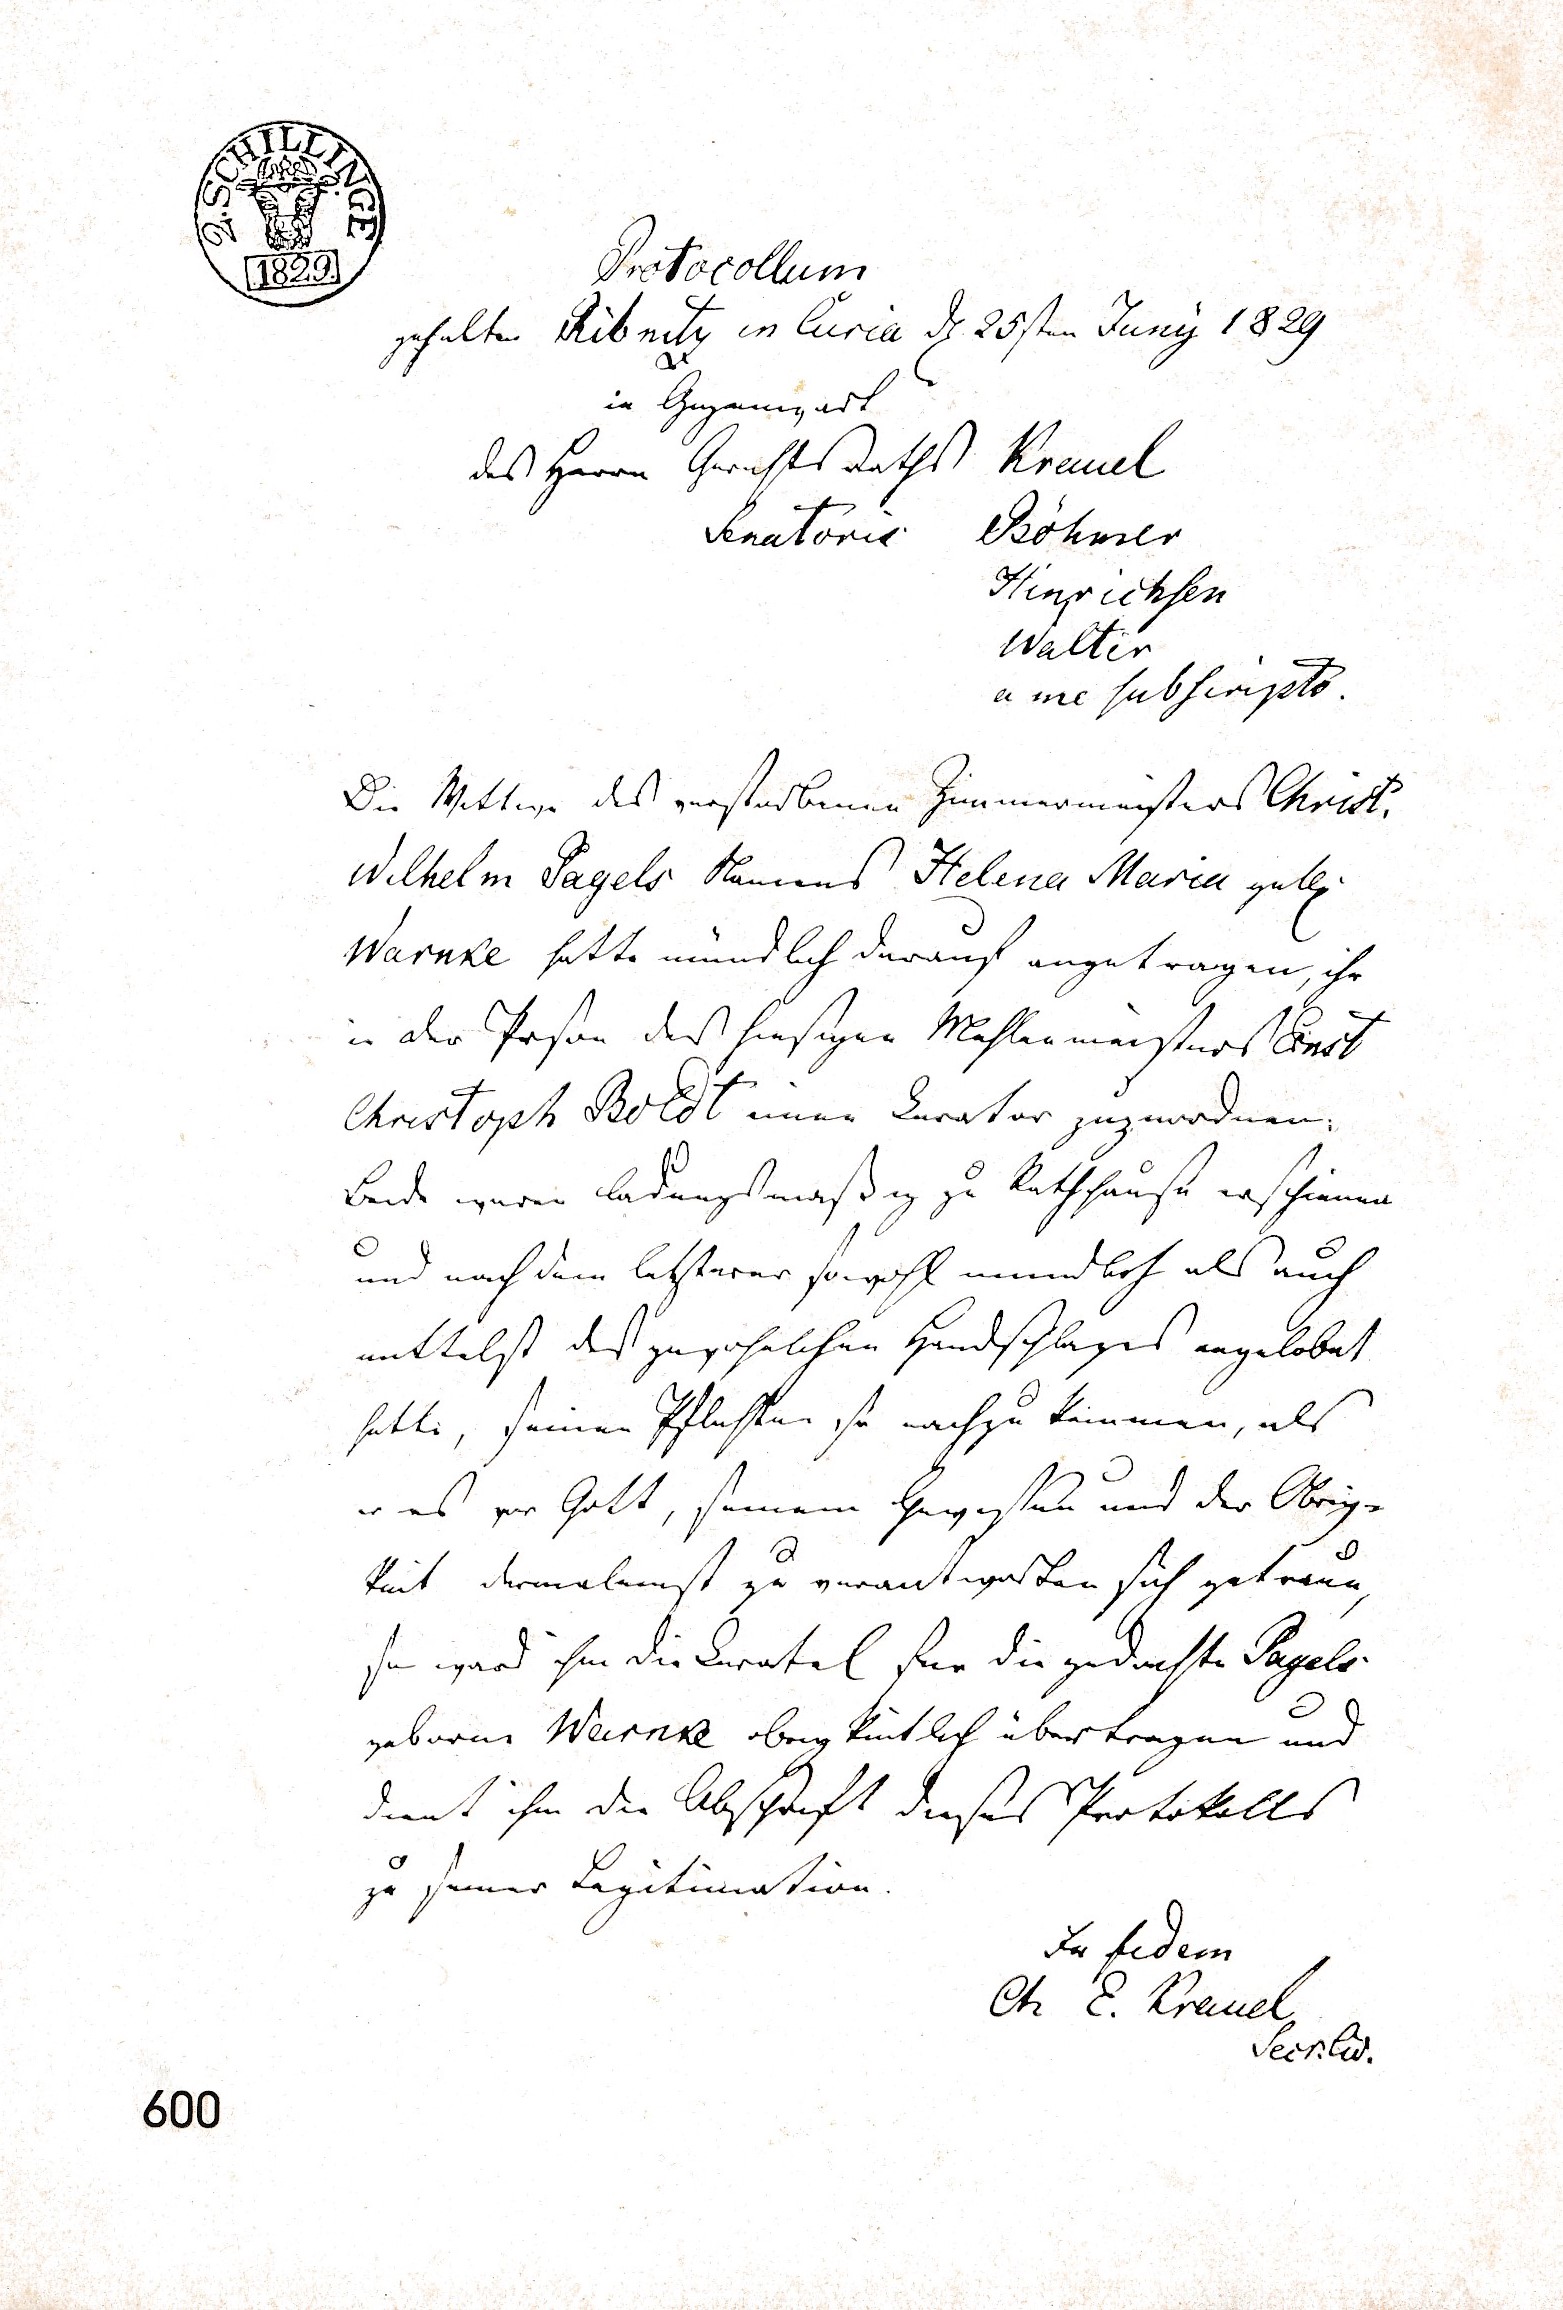 2. SCHILLINGE
1829.
Protocollum
gehalten Ribnitz in Curia d. 25sten Juny 1829
in Gegenwart
des Herrn Gerichts Raths Kreuel
Senatoris Böhmer
Hinrichsen
Walter
a me subscripto.
Die Wittwe des verstorbenen Zimmermeisters Christ.
Wilhelm Pagels Namens Helena Maria geb.
Warnke hatte mündlich darauf angetragen, ihr
in der Person des hiesigen Mühlenmeisters Ernst
Christoph Boldt einen Curator zuzuordnen.
Beide waren ladungsmäßig zu Rathhause erschienen
und nachdem letzterer sowohl mündlich als auch
mittelst des gewöhnlichen Handschlages angelobet
hatte, seinen Pflichten so nachzukommen, als
er es vor Gott, seinem Gewissen und der Obrig-
keit dermaleinst zu verantworten sich getraue,
so ward ihm die Curatel für die gedachte Pagels
geborne Warnke obrigkeitlich übertragen und
dient ihm die Abschrift dieses Protokolls
zu seiner Legitimation.
In fidem
Ch. E. Kreuel
Secr. Civ.
600